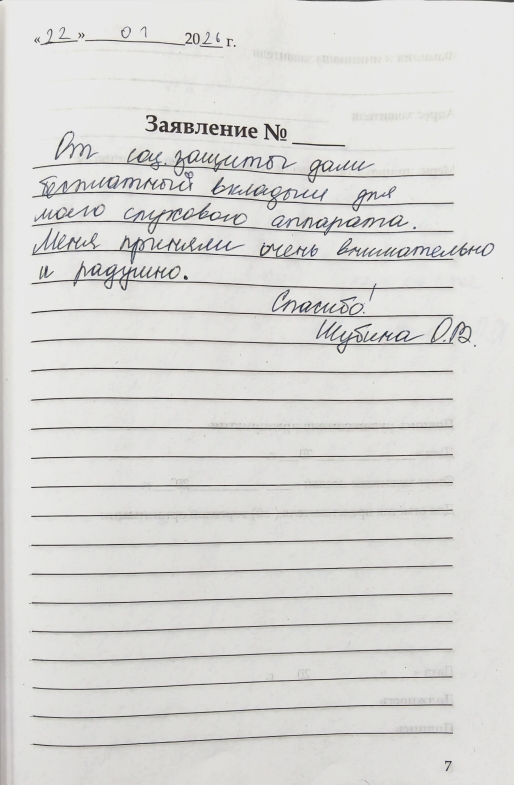 «22» 01 2026 г.
Заявление № ____
От соц. защиты дали
бесплатный вкладыш для
моего слухового аппарата.
Меня приняли очень внимательно
и радушно.
Спасибо!
Шубина О.В.
7